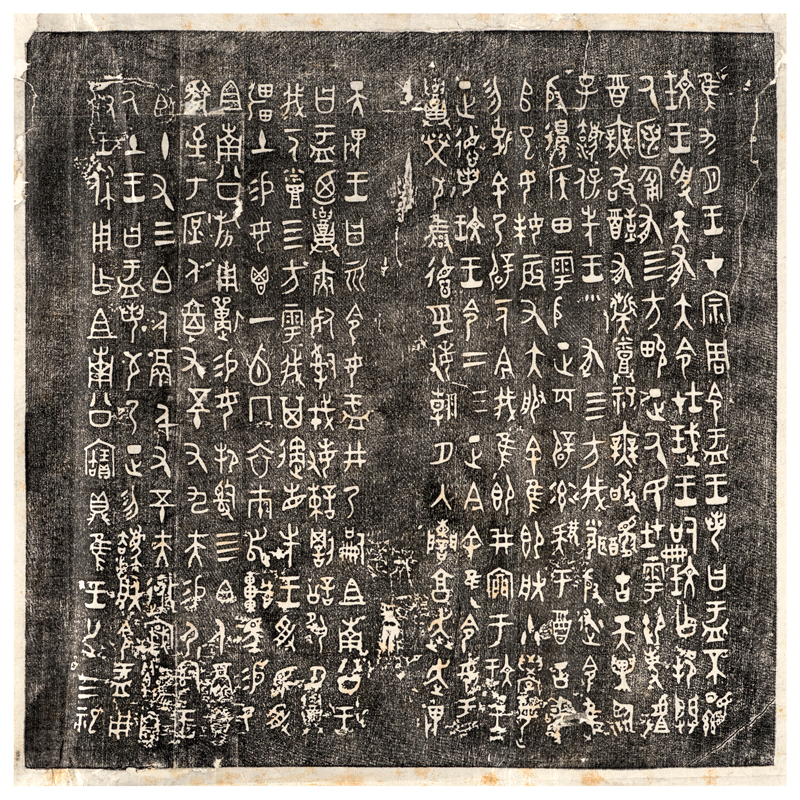 隹九月王才宗周令盂王若曰盂不顯
玟王受天有大令在珷王嗣玟乍邦闢
厥匿匍有四方畯正厥民在雩御事𠭯
酉無敢酖有髭烝祀無敢𩰬古天異臨
子灋保先王有四方我聞殷述令隹
殷邊侯田雩殷正百辟率肄于酉古喪
𠂤巳女妹辰又大服余隹即朕小學女
勿克余乃辟一人今我隹即井于玟王
正德若玟王令二三正今余隹令女盂
召榮敬雍德巠敏朝夕入讕享奔走畏
天畏王曰而令女盂井乃嗣且南公王
曰盂迺召夾死司戎敏諫罰訟夙夕召
我一人烝四方雩我其遹省先王受民受
疆土易女鬯一卣冂衣巿舄車馬易乃
且南公旂用狩易女邦司四白人鬲自
馭至于庶人六百又五十又九夫易尸司王
臣十又三白人鬲千又五十夫遷自
厥土王曰盂若敬乃正勿灋朕令盂用
對王休用乍且南公寶鼎隹王廿又三祀